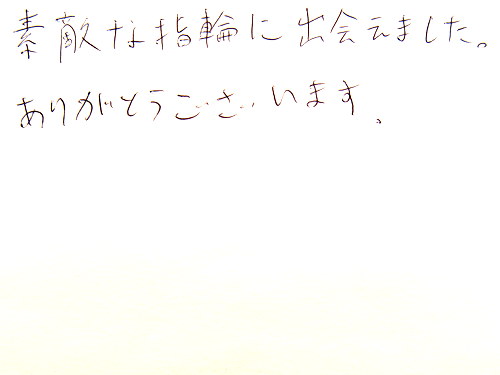 素敵な指輪に出会えました。
ありがとうございます。